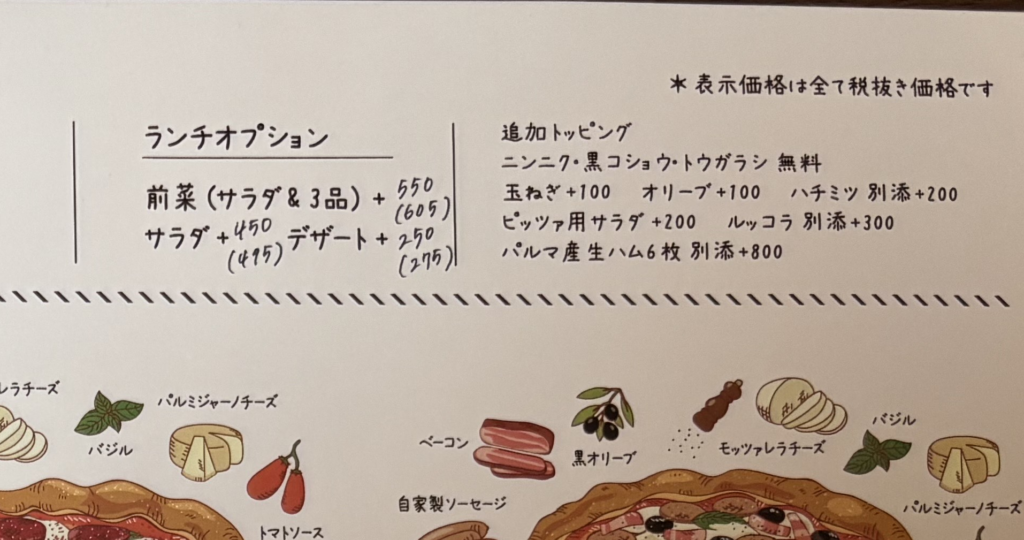 ＊表示価格は全て税抜き価格です
ランチオプション
前菜(サラダ&3品)+550
(605)
サラダ+450 デザート+250
(495) (275)
追加トッピング
ニンニク・黒コショウ・トウガラシ 無料
玉ねぎ+100 オリーブ+100 ハチミツ 別添+200
ピッツァ用サラダ+200 ルッコラ 別添+300
パルマ産生ハム6枚 別添+800
レラチーズ
バジル
パルミジャーノチーズ
トマトソース
ベーコン
黒オリーブ
自家製ソーセージ
モッツァレラチーズ
バジル
パルミジャーノチーズ